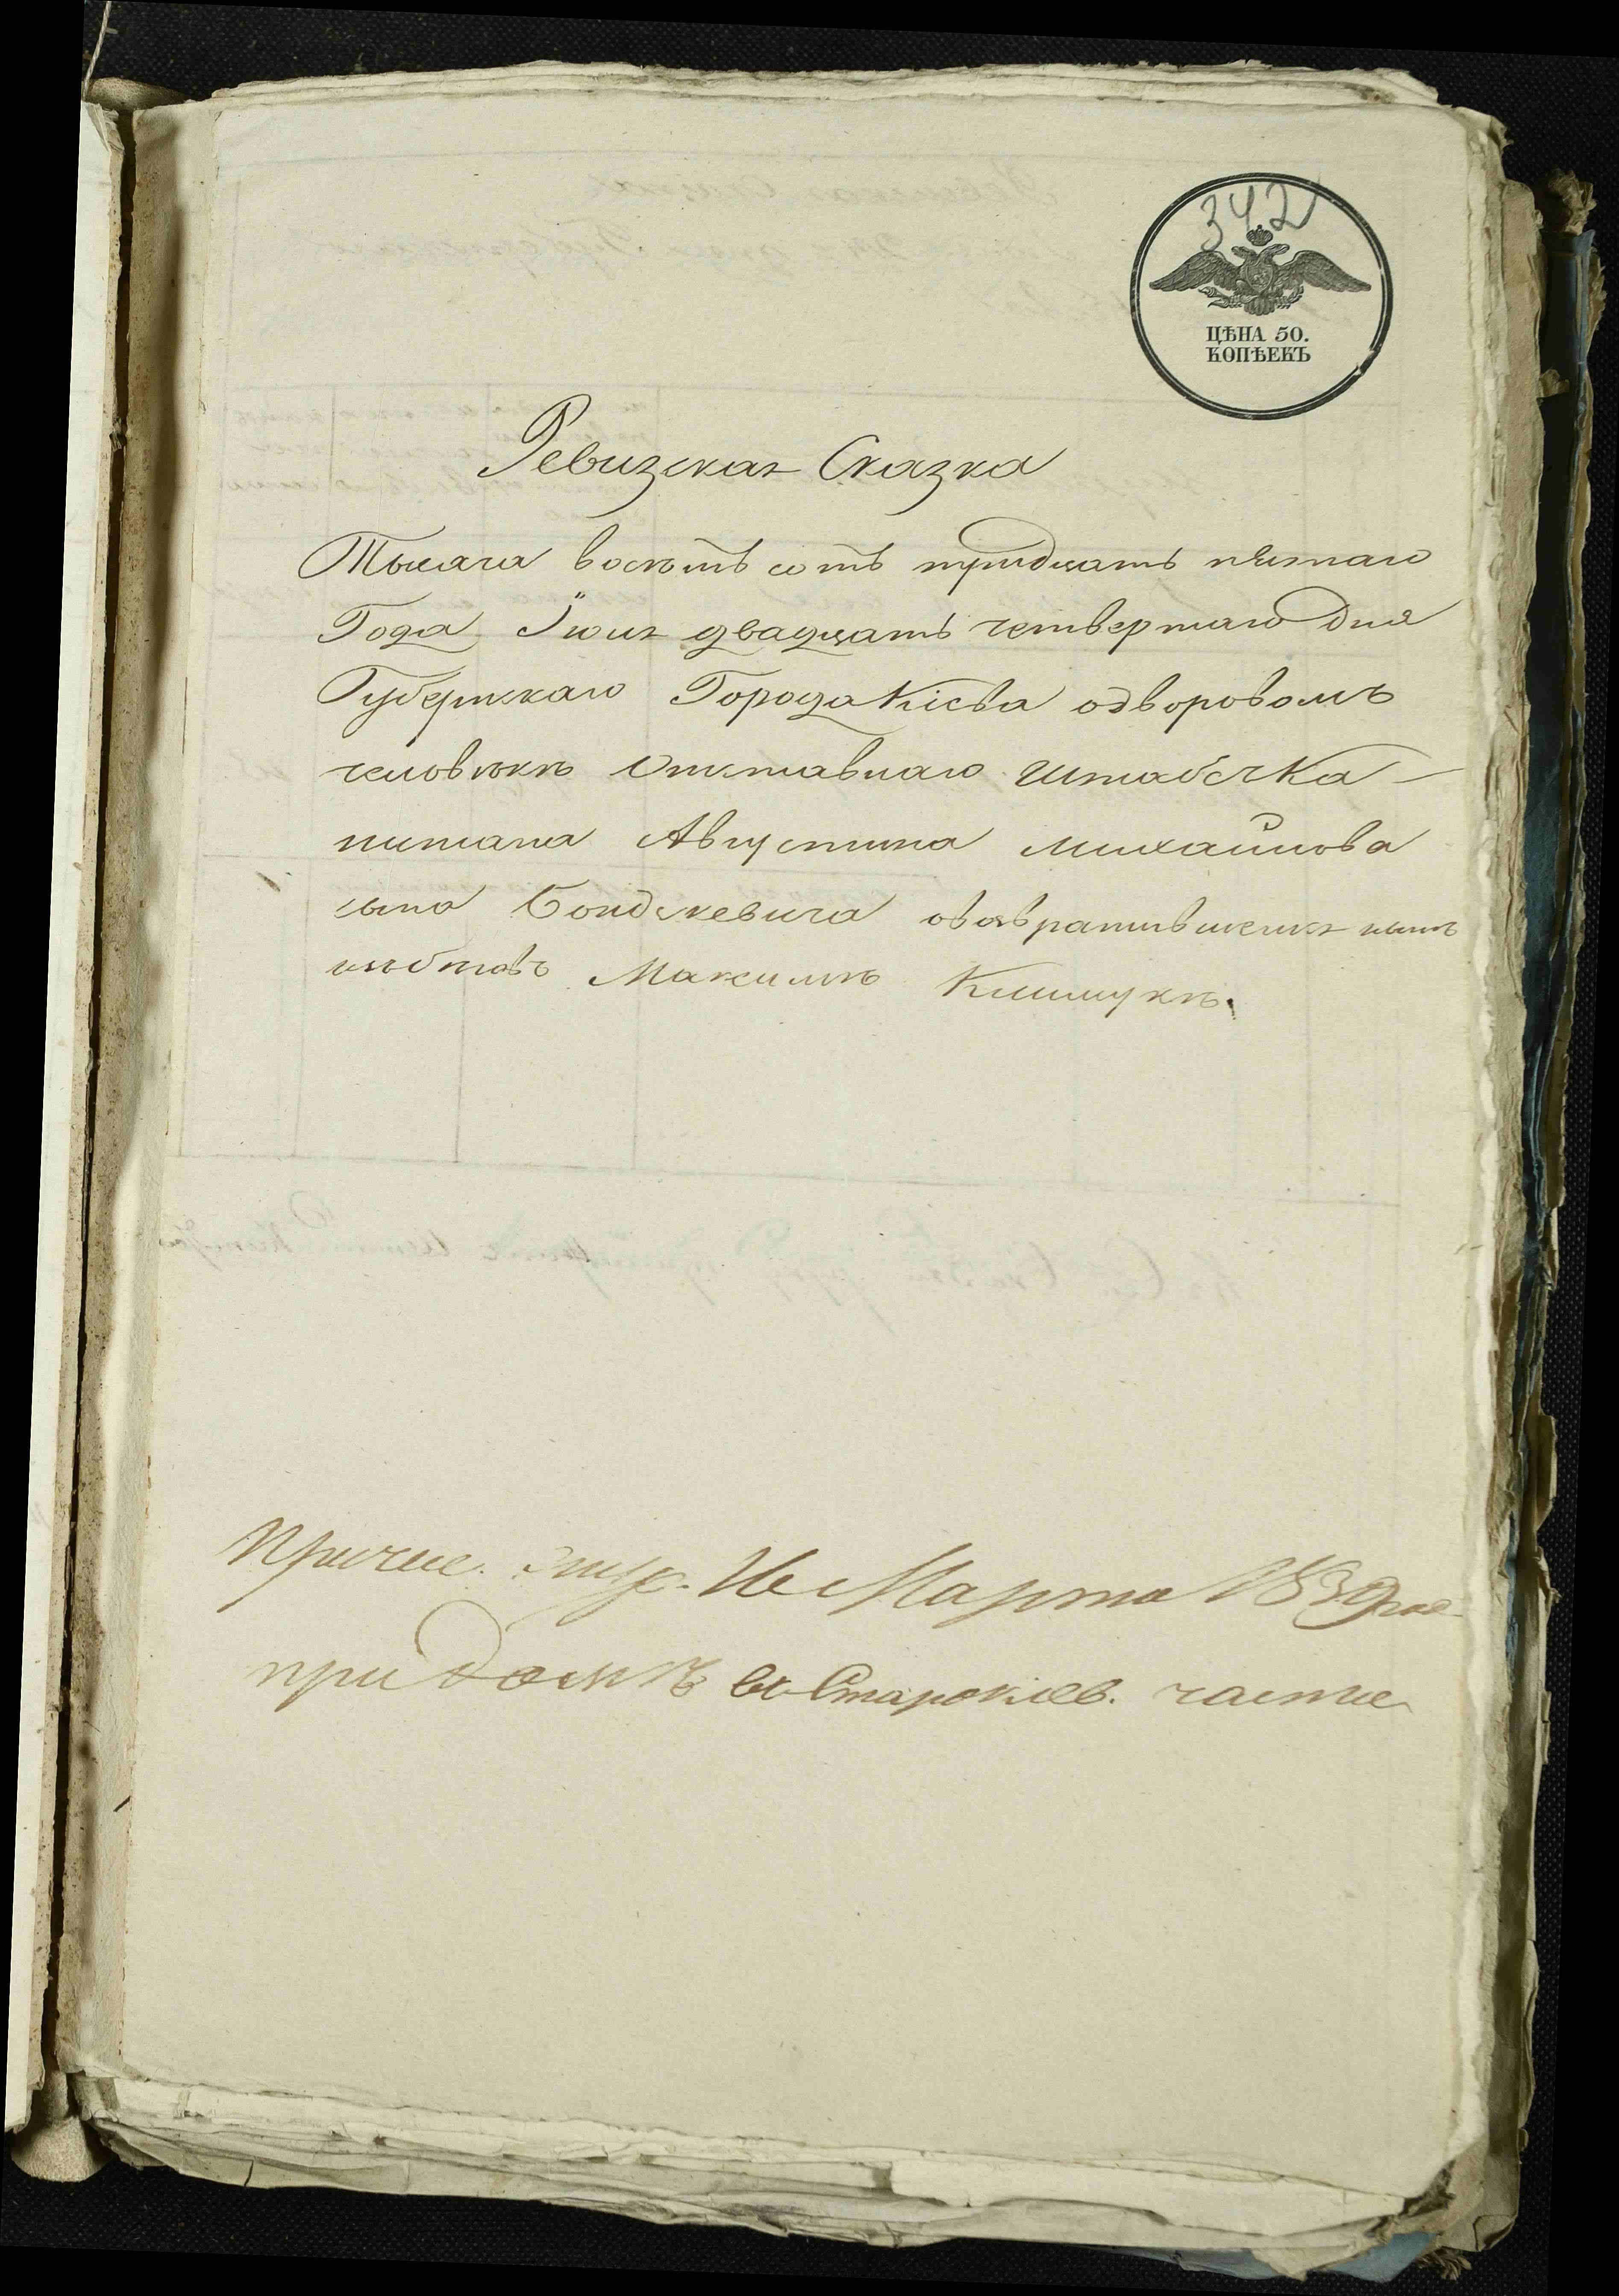 342
ЦѢНА 50.
КОПѢЕКЪ
Ревизская Сказка
Тысяча восемъ сотъ тридцать пятаго
Года Іюля двадцать четвертаго дня
Губернскаго Города Кіева одворовомъ
человѣкѣ Отставнаго Штабсъ Ка-
питана Августина Михайлова
сына овозвратившемся нынѣ
избѣговъ Максимѣ Климукѣ.
Причис. 16 Марта 1839
при домѣ въ Старокіев. части